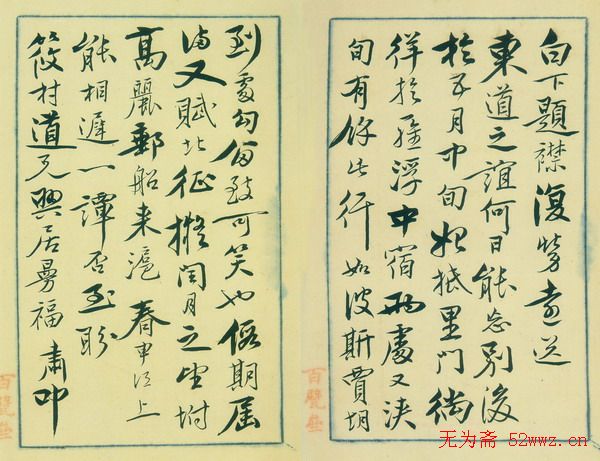 白下題襟復勞遠送
東道之誼何日能忘別後
於五月中旬始抵里門徜
徉於羅浮中宿兩處又浹
旬有餘此行如波斯賈胡
到處勾留致可笑也假期屆
滿又賦北征擬閏月之望坿
高麗郵船來滬春申江上
能相遲一譚否至盼
筱村道兄興居曼福 肅叩
无为斋 52wwz.cn